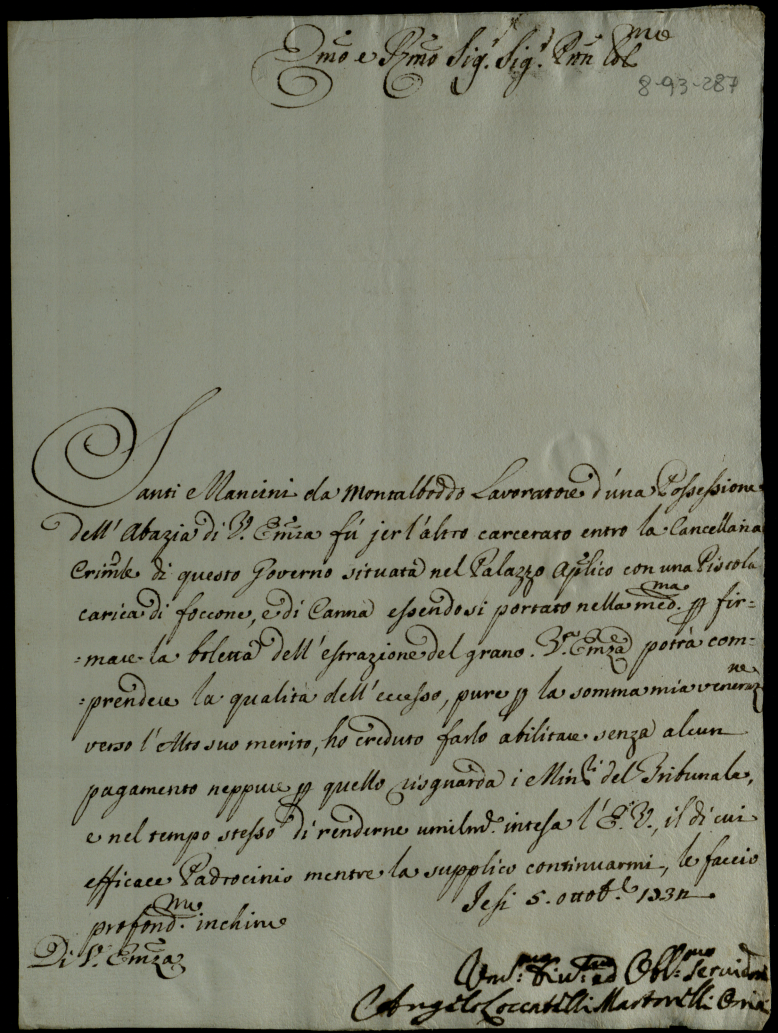 Emo e Rmo Sig.r Sig.r Pron Col.mo
8-93-287
Santi Mancini da Montalboddo Lavoratore d'una Possessione
dell'Abazia di V. Emza fù jer l'altro carcerato entro la Cancellaria
Crimle di questo Governo situata nel Palazzo Aplico con una Pistola
carica di foccone, e di Canna essendosi portato nella med.ma p fir=
=mare la boletta dell'estrazione del grano. V.ra Emza potrà com=
=prendere la qualità dell'eccesso, pure p la somma mia veneraz.ne
verso l'Alto suo merito, ho creduto farlo abilitare senza alcun
pagamento neppure p quello risguarda i Min.ri del Tribunale,
e nel tempo stesso di renderne umilmd. intesa l'E.V., il di cui
efficace Padrocinio mentre la supplico continuarmi, le faccio
profond.me inchine
Jesi 5. ottob.e
Di V. Emza
Um.mo Div.mo ed Obl.mo Servidore
Angelo Loccatelli Martorelli Orsi